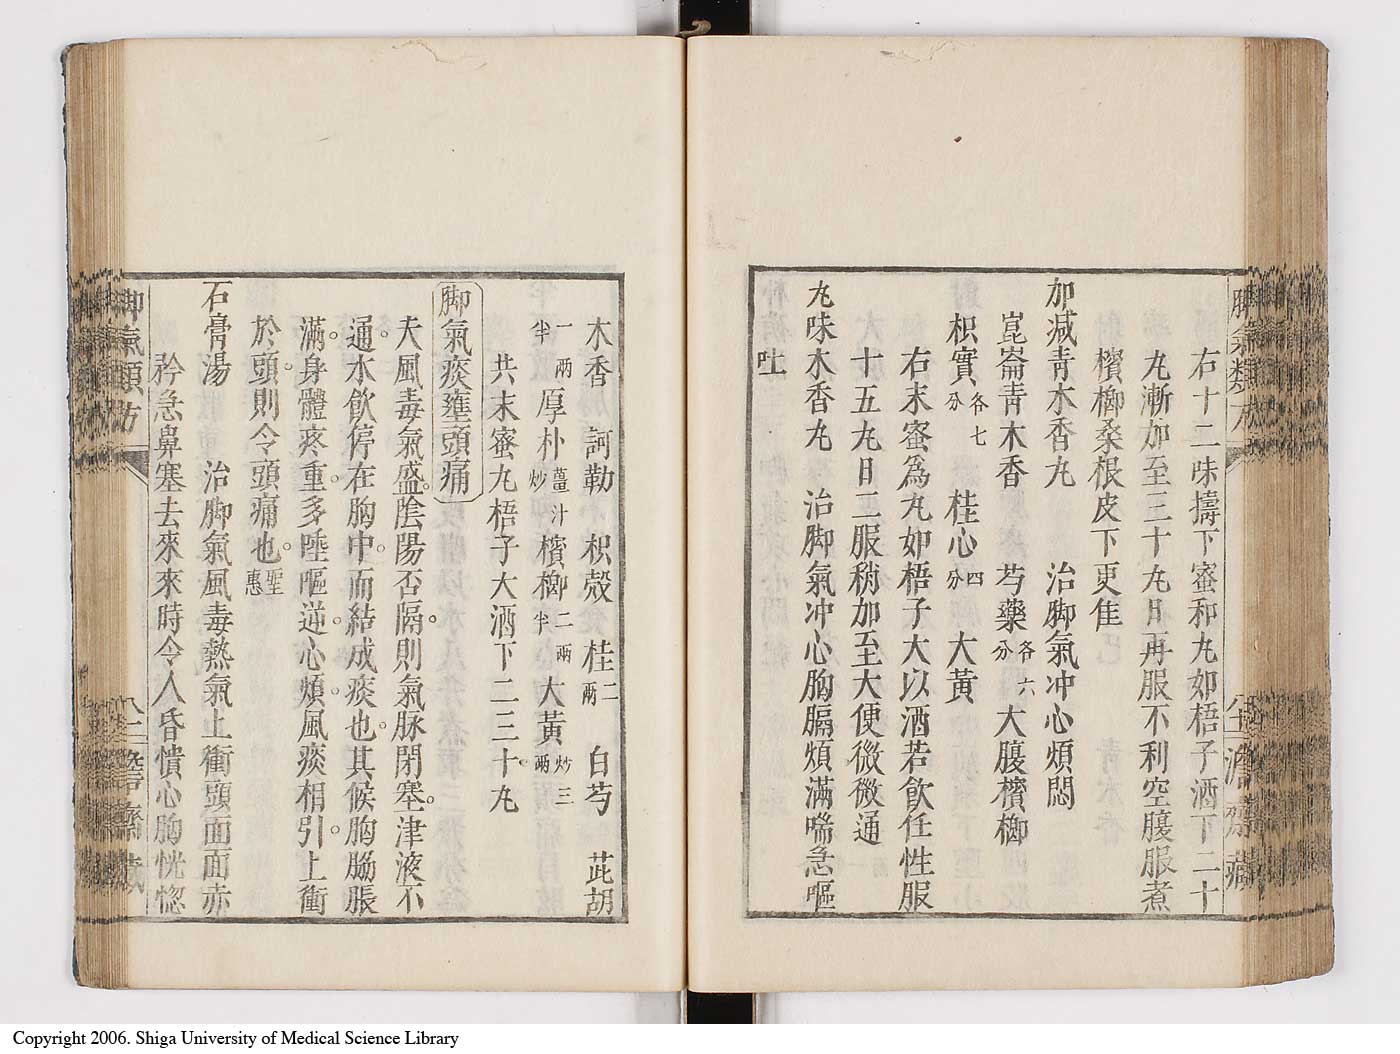 右十二味擣下蜜和丸如梧子酒下二十
丸漸加至三十丸日再服不利空腹服煮
檳榔桑根皮下更佳
加减青木香丸　治脚氣冲心煩悶
崑崙青木香　芍藥各六分　大腹檳榔
枳實各七分　桂心四分　大黃
右末蜜爲丸如梧子大以酒若飲任性服
十五丸日二服稍加至大便微微通
九味木香丸　治脚氣冲心胸膈煩滿喘急嘔
吐
木香　訶勒　枳殼　桂二兩　白芍　茈胡
一兩半　厚朴薑汁炒　檳榔二兩半　大黃炒三兩
共末蜜丸梧子大酒下二三十丸
脚氣痰壅頭痛
夫風毒氣盛陰陽否隔則氣脉閉塞津液不
通水飲停在胸中而結成痰也其候胸膈脹
滿身體疼重多唾嘔逆心煩風痰相引上衝
於頭則令頭痛也聖惠
石膏湯　治脚氣風毒熱氣上衝頭面面赤
矜急鼻塞去來來時令人昏憒心胸恍惚
脚氣類方
Copyright 2006. Shiga University of Medical Science Library